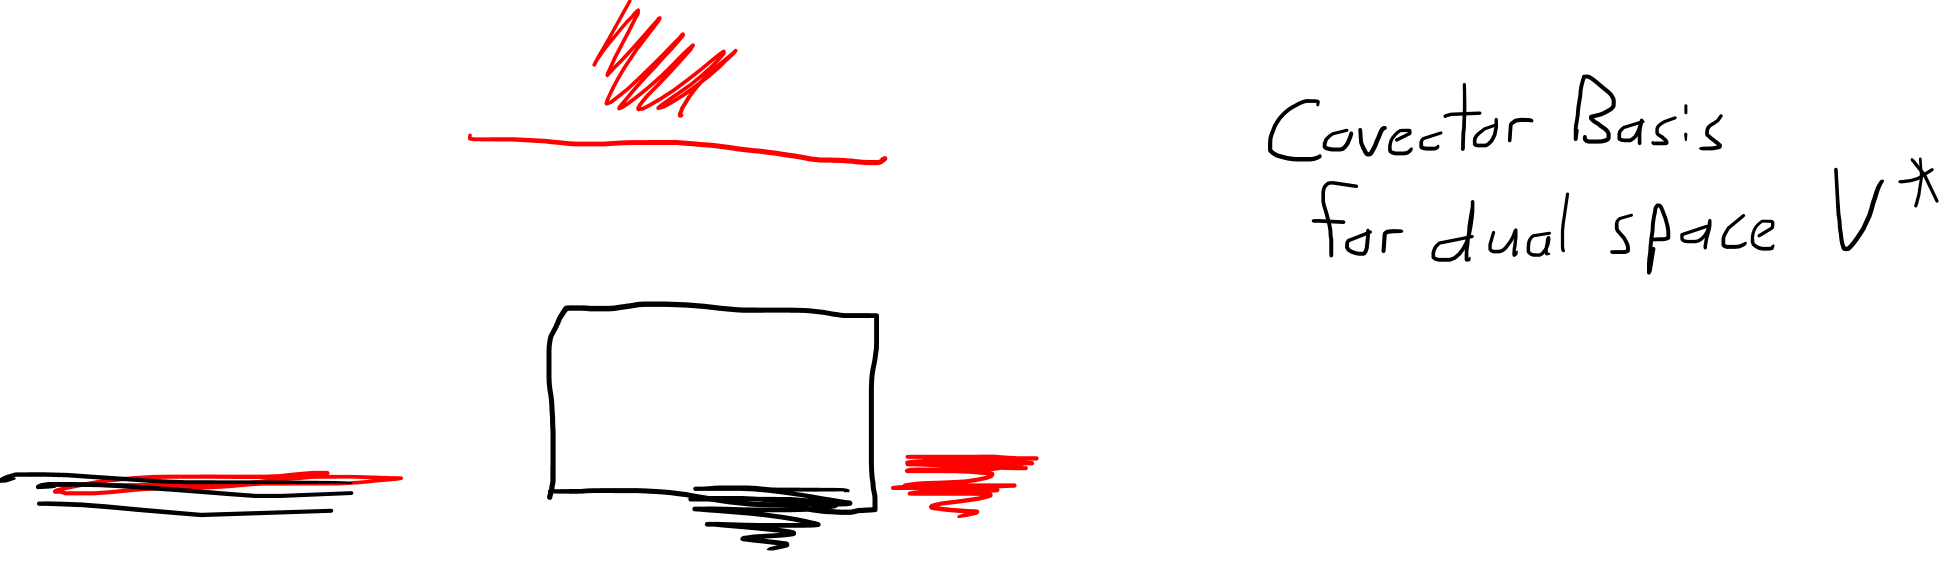 Covector Basis
for dual space V*